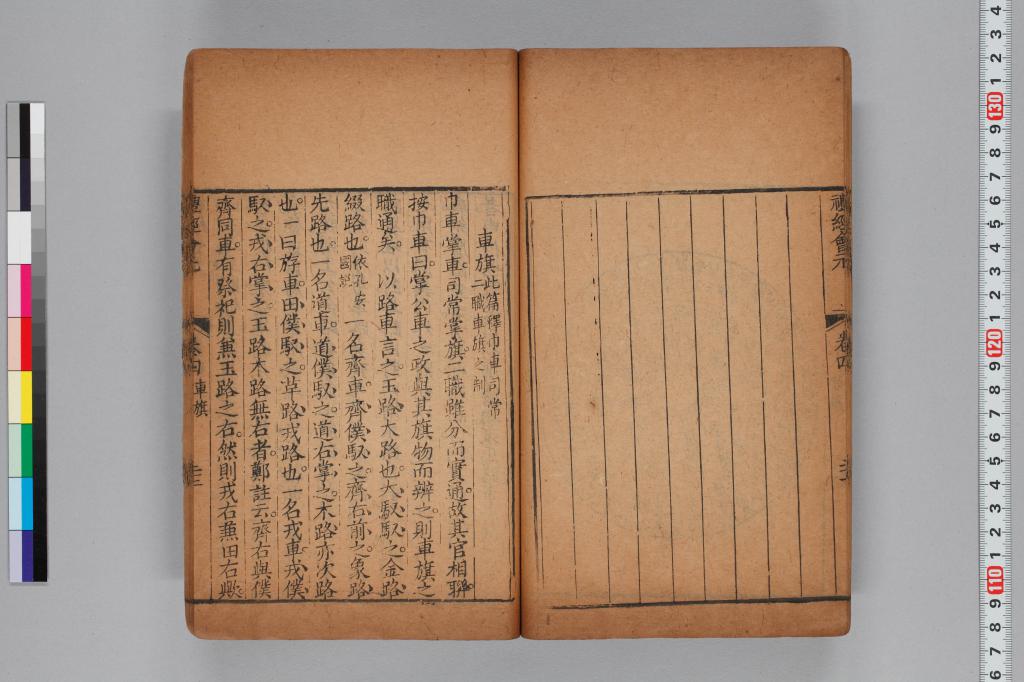 禮經會元
卷四
車旗此篇釋巾車司常二職車旗之制
巾車掌車司常掌旗二職雖分而實通故其官相聯
按巾車曰掌公車之政與其旗物而辨之則車旗之
職通矣以路車言之玉路大路也大馭馭之金路
綴路也依孔安國說一名齊車齊僕馭之齊右前之象路
先路也一名道車道僕馭之道右掌之木路亦次路
也一曰斿車田僕馭之革路戎路也一名戎車戎僕
馭之戎右掌之玉路木路無右者鄭註云齊右與僕
齊同車有祭祀則無玉路之右然則戎右兼田右歟
禮經會元
卷四 車旗